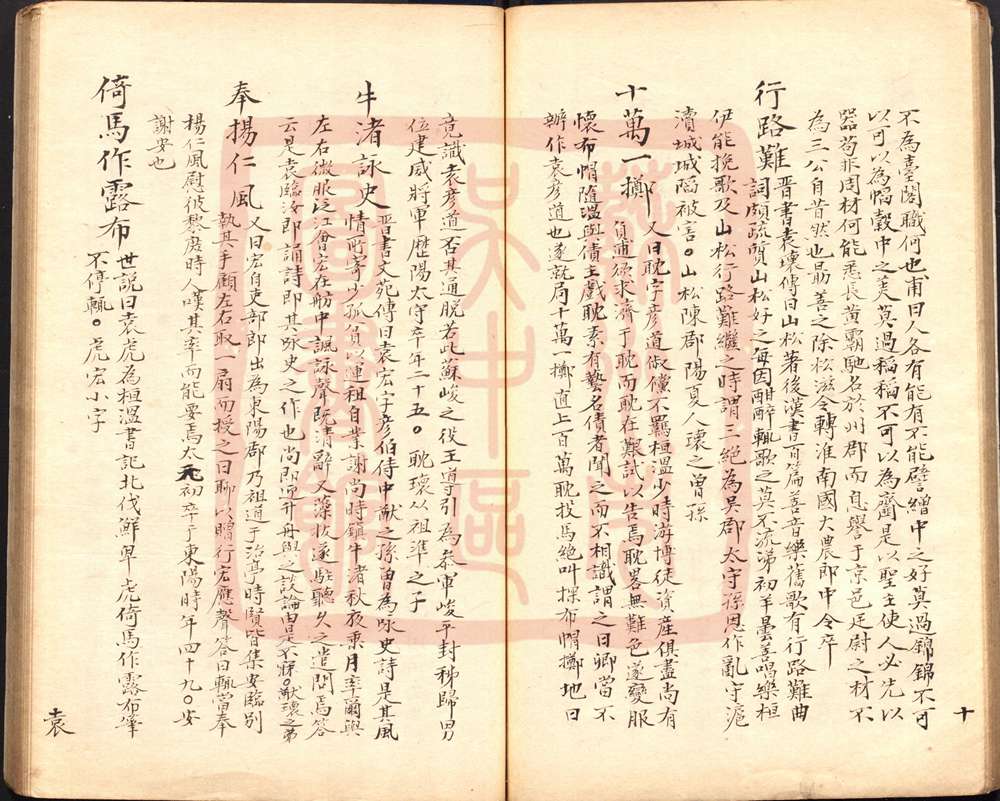 十
不為臺閣職何也甫曰人各有能有不能譬繒中之好莫過錦錦不可
以可以為幍縠中之美莫過稻稻不可以為虀是以聖主使人必先以
器苟非周材何能悉長黃霸馳名於州郡而息譽于京邑廷尉之材不
為三公自昔然也勗善之除松滋令轉淮南國大農郎中令卒
行路難晉書袁壞傳曰山松著後漢書百篇善音樂舊歌有行路難曲
詞頗疏質山松好之每因酣醉輒歌之莫不流涕初羊曇善唱樂桓
伊能挽歌及山松行路難繼之時謂三絕為吳郡太守孫恩作亂守滬
瀆城城陷被害。山松陳郡陽夏人瓌之曾孫
十萬一擲又曰耽字彥道俶儻不羈桓溫少時游博徒資產俱盡尚有
負進欲求濟于耽而耽在艱試以告焉耽畧無難色遂變服
懷布帽隨溫與債主戲耽素有藝名債者聞之而不相識謂之曰卿當不
辦作袁彥道也遂就局十萬一擲直上百萬耽投馬絕叫探布帽擲地曰
竟識袁彥道否其通脫若此蘇峻之役王導引為參軍峻平封秭歸男
位建威將軍歷陽太守卒年二十五。耽瓌從祖準之子
牛渚詠史晉書文苑傳曰袁宏字彥伯侍中猷之孫曾為咏史詩是其風
情所寄少孤貧以運租自業謝尚時鎮牛渚秋夜乘月率爾與
左右微服泛江會宏在舫中諷詠聲既清辭又藻拔遂駐聽久之遣問焉答
云是袁臨汝郎誦詩即其咏史之作也尚即迎升舟與之談論由是不寐。猷瓌之弟
奉揚仁風又曰宏自吏部郎出為東陽郡乃祖道于治亭時賢皆集安臨別
執其手顧左右取一扇而授之曰聊以贈行宏應聲答曰輒當奉
揚仁風慰彼黎庶時人嘆其率而能要焉太元初卒于東陽時年四十九。安
謝安也
倚馬作露布世說曰袁虎為桓溫書記北伐鮮卑虎倚馬作露布筆
不停輟。虎宏小字
袁